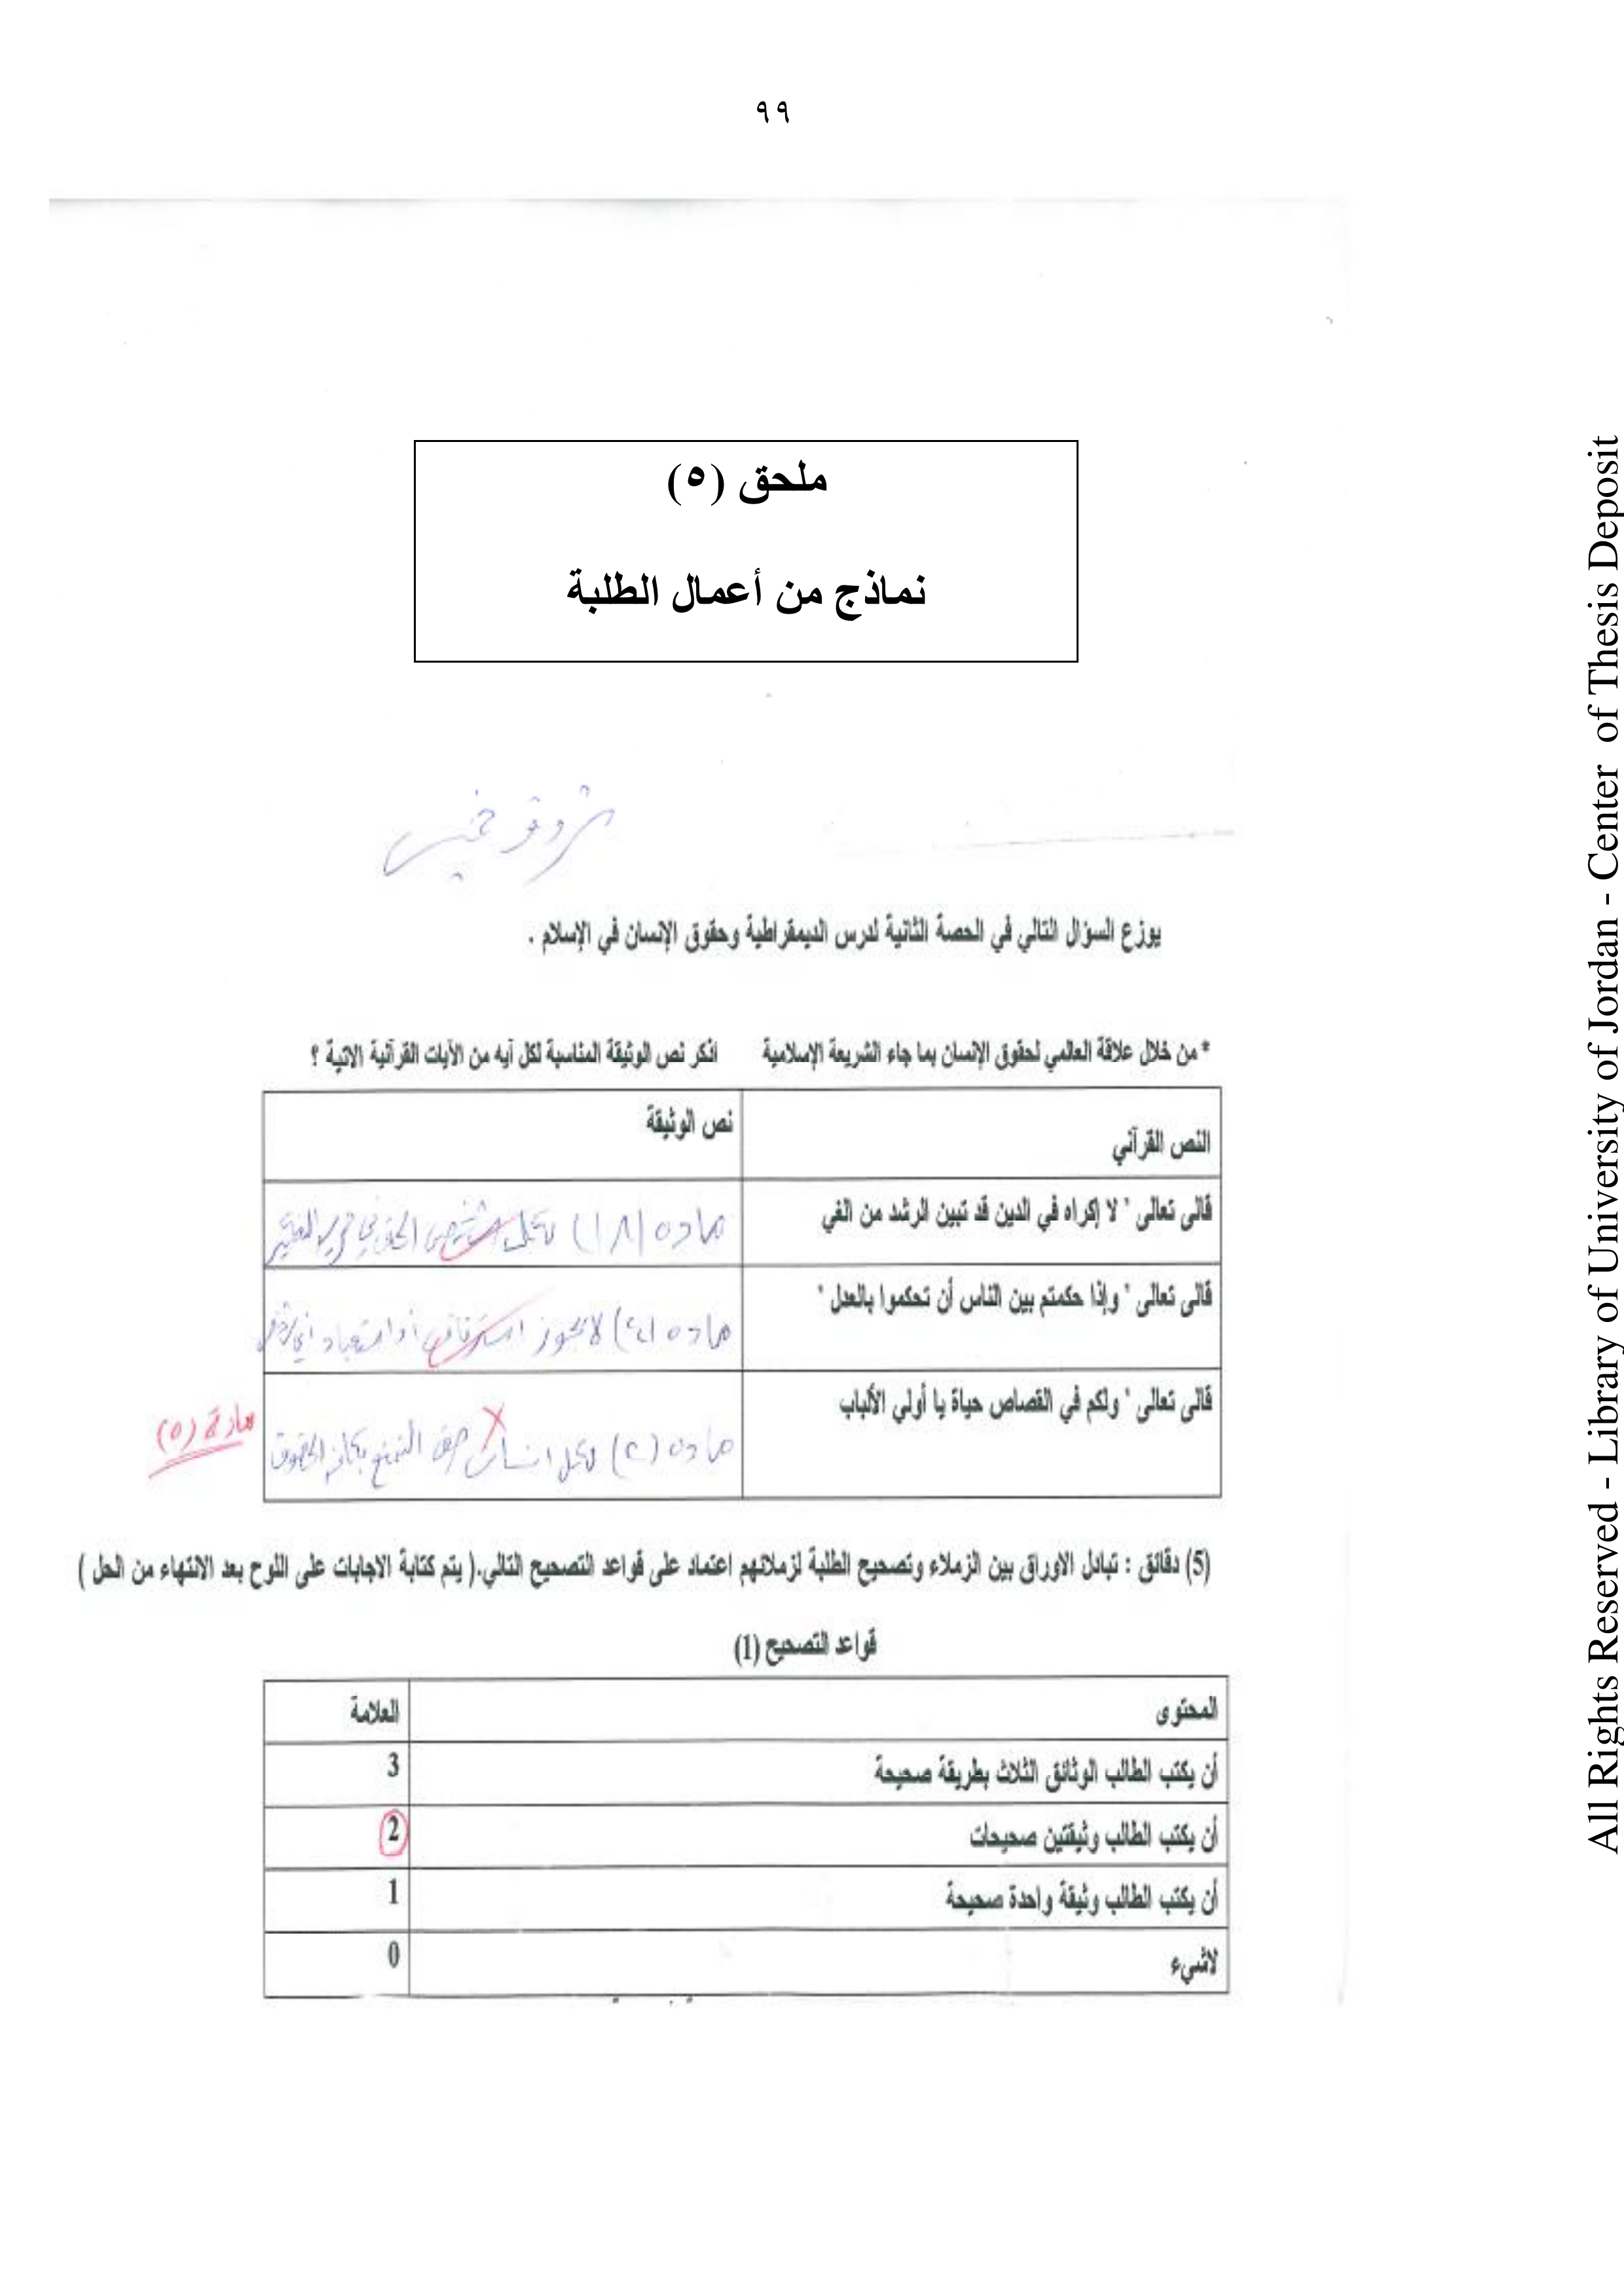 ٩٩
ملحق (٥)
نماذج من أعمال الطلبة
يوزع السؤال التالي في الحصة الثانية لدرس الديمقراطية وحقوق الإنسان في الإسلام .
* من خلال علاقة العالمي لحقوق الإنسان بما جاء الشريعة الإسلامية اذكر نص الوثيقة المناسبة لكل آيه من الآيات القرآنية الاتية ؟
النص القرآني نص الوثيقة
قالى تعالى " لا إكراه في الدين قد تبين الرشد من الغي ماده (١٨) لكل شخص الحق في
قالى تعالى " وإذا حكمتم بين الناس أن تحكموا بالعدل " ماده (٤) لا يجوز استرقاق أو استعباد أي شخص
قالى تعالى " ولكم في القصاص حياة يا أولي الألباب ماده (٢) لكل انسان حق التمتع بكافة الحقوق
مادة (٥)
(5) دقائق : تبادل الاوراق بين الزملاء وتصحيح الطلبة لزملائهم اعتماد على قواعد التصحيح التالي.( يتم كتابة الاجابات على اللوح بعد الانتهاء من الحل )
قواعد التصحيح (1)
المحتوى العلامة
أن يكتب الطالب الوثائق الثلاث بطريقة صحيحة 3
أن يكتب الطالب وثيقتين صحيحات 2
أن يكتب الطالب وثيقة واحدة صحيحة 1
لاشيء 0
All Rights Reserved - Library of University of Jordan - Center of Thesis Deposit